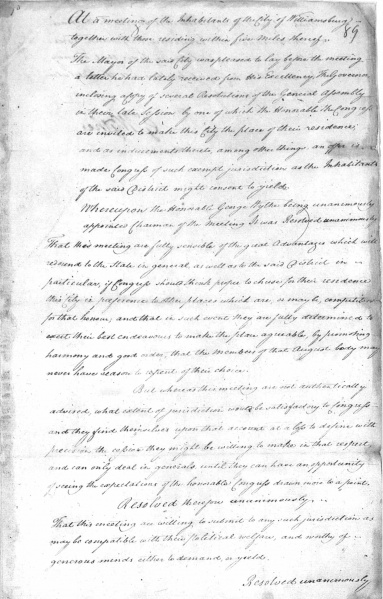 89
At a meeting of the Inhabitants of the City of Williamsburg,
together with those residing within five Miles thereof
The Mayor of the said City was pleased to lay before the meeting
a letter he had lately received from His Excellency The Governor
inclosing a Copy of several Resolutions of the General Assembly
in their late Session by one of which the Honorable the Congress
are invited to make this City the place of their residence,
and as inducements thereto, among other things an offer is
made Congress of such exempt jurisdiction as the Inhabitants
of the said District might consent to yield.
Whereupon the Honorable George Wythe being unanimously
appointed Chairman of the Meeting It was Resolved unanimously
That this meeting are fully sensible of the great Advantages which will
redound to the State in general, as well as to the said District in
particular, if Congress should think proper to choose for their residence
this City in preference to other places which are, or may be, competitors
for that honour, and that in such event they are fully determined to
exert their best endeavours to make the place agreeable, by promoting
harmony and good order, that the Members of that August body may
never have reason to repent of their choice.
But whereas this meeting are not authentically
advised, what extent of jurisdiction would be satisfactory to Congress
and they find themselves upon that account at a loss to define with
precision the cession they might be willing to make in that respect
and can only deal in generals until they can have an opportunity
of seeing the expectations of the honorable Congress drawn more to a point.
Resolved therefore unanimously
That this meeting are willing to submit to any such jurisdiction as
may be compatible with their political welfare, and worthy of
generous minds either to demand or yield.
Resolved unanimously